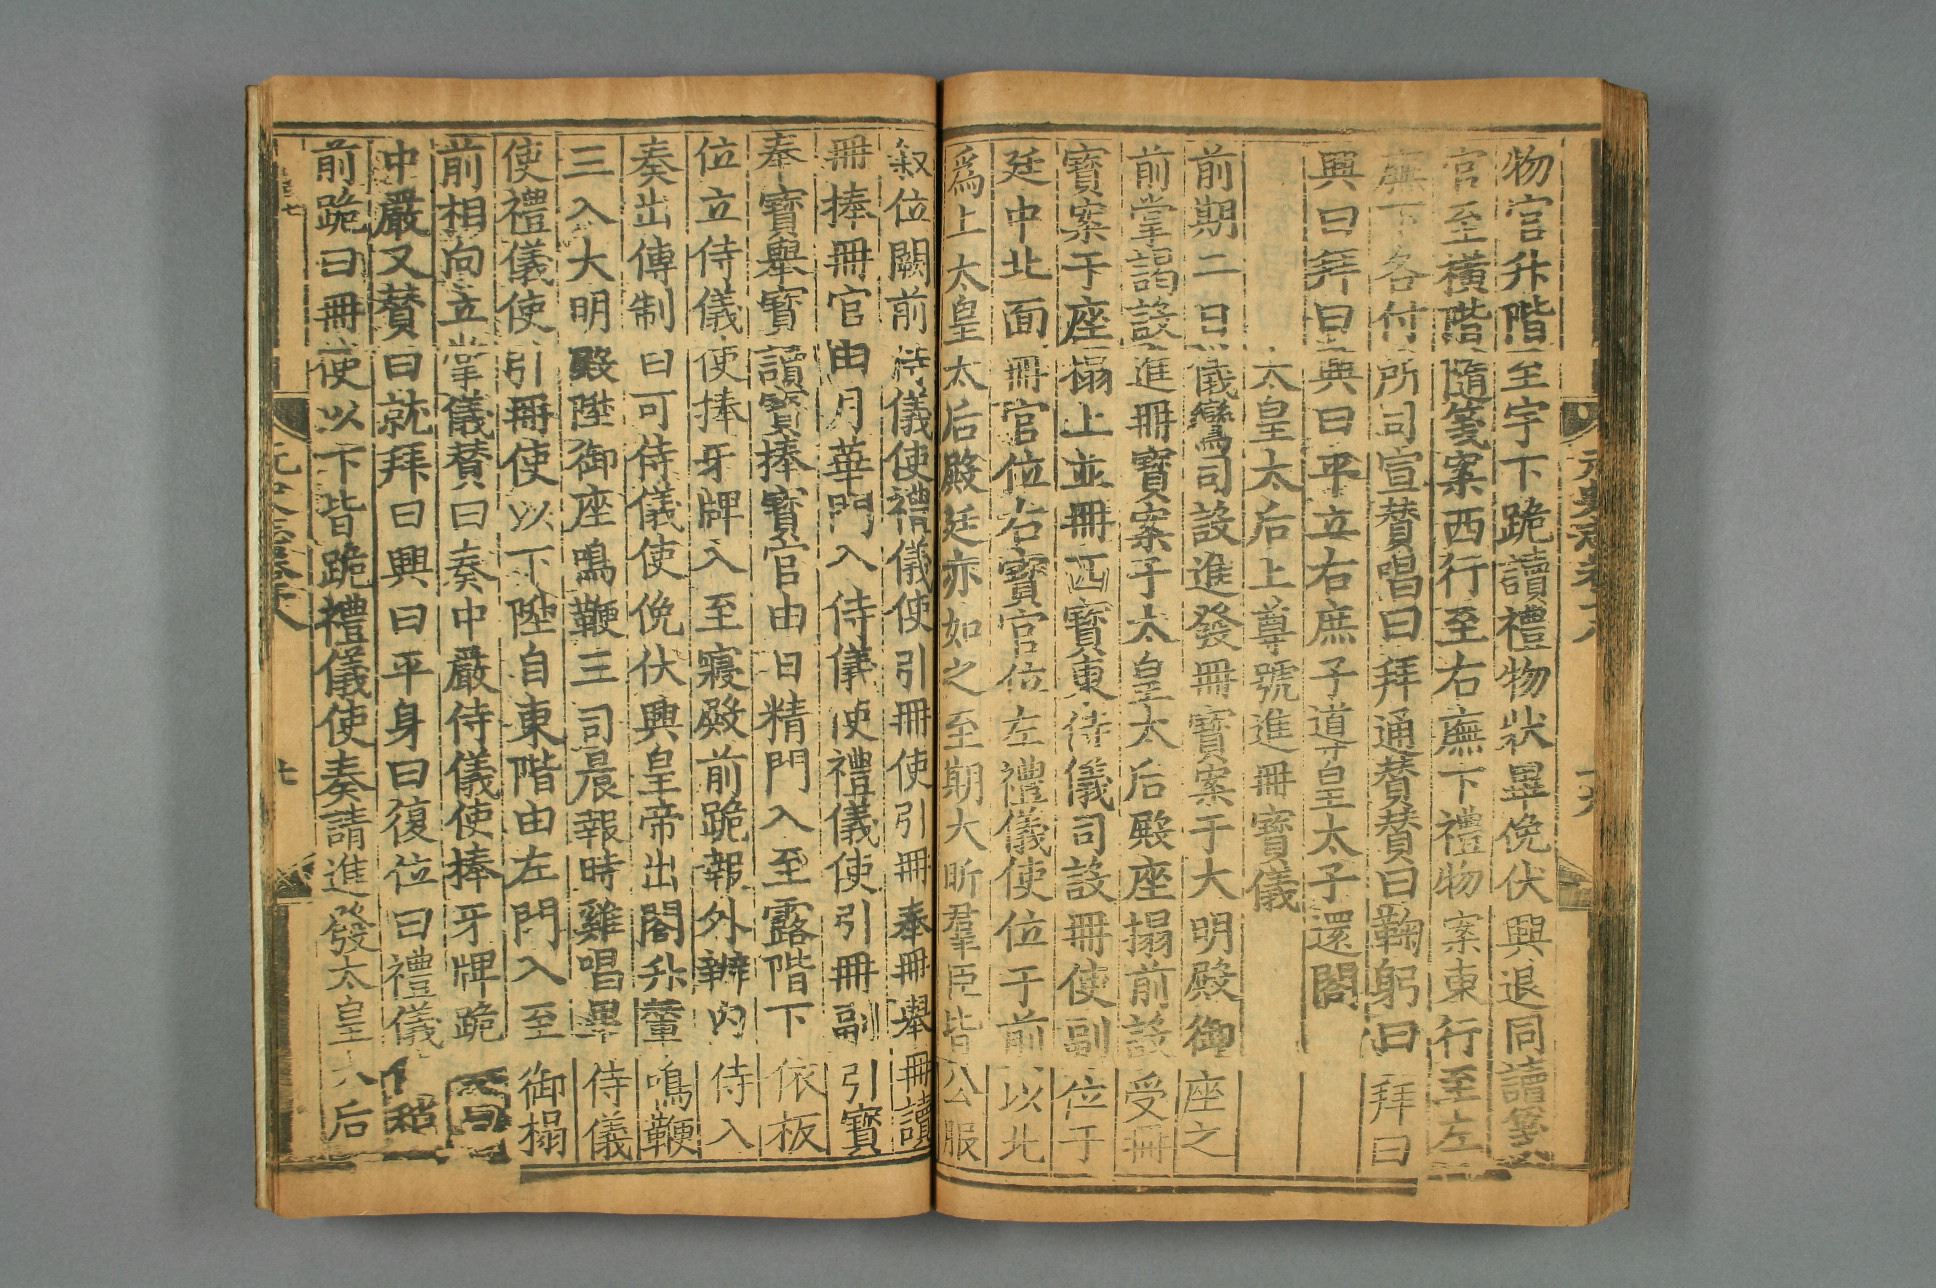 元史志卷十八
物官升階至宇下跪讀禮物狀畢俛伏興退同讀箋
官至橫階隨箋案西行至右廡下禮物案東行至左
廡下各付所司宣贊唱曰拜通贊贊曰鞠躬曰拜曰
興曰拜曰興曰平立右庶子導皇太子還閤
太皇太后上尊號進冊寶儀
前期二日儀鸞司設進發冊寶案于大明殿御座之
前掌謁設進冊寶案于太皇太后殿座榻前設受冊
寶案于座榻上並冊西寶東侍儀司設冊使副位于
廷中北面冊官位右寶官位左禮儀使位于前以北
爲上太皇太后殿廷亦如之至期大昕羣臣皆公服
叙位闕前侍儀使禮儀使引冊使引冊奉冊舉冊讀
冊捧冊官由月華門入侍儀使禮儀使引冊副引寶
奉寶舉寶讀寶捧寶官由日精門入至露階下依板
位立侍儀使捧牙牌入至寢殿前跪報外辦內侍入
奏出傳制曰可侍儀使俛伏興皇帝出閤升輦鳴鞭
三入大明殿陞御座鳴鞭三司晨報時雞唱畢侍儀
使禮儀使引冊使以下陞自東階由左門入至御榻
前相向立掌儀贊曰奏中嚴侍儀使捧牙牌跪
中嚴又贊曰就拜曰興曰平身曰復位曰禮儀
前跪曰冊使以下皆跪禮儀使奏請進發太皇太后